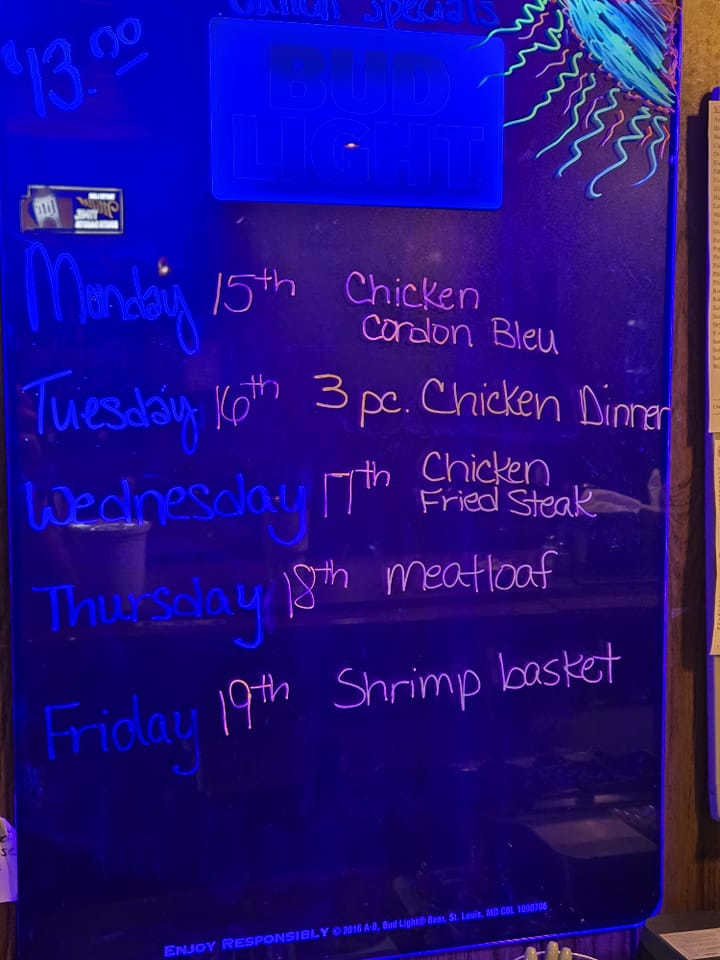 Specials
$13.00
BUD
LIGHT
Lite
Miller
TIME
Monday 15th Chicken
Cordon Bleu
Tuesday 16th 3 pc. Chicken Dinner
Wednesday 17th Chicken
Fried Steak
Thursday 18th Meatloaf
Friday 19th Shrimp basket
ENJOY RESPONSIBLY © 2016 A-B, Bud Light® Beer, St. Louis, MO CBL 1090706